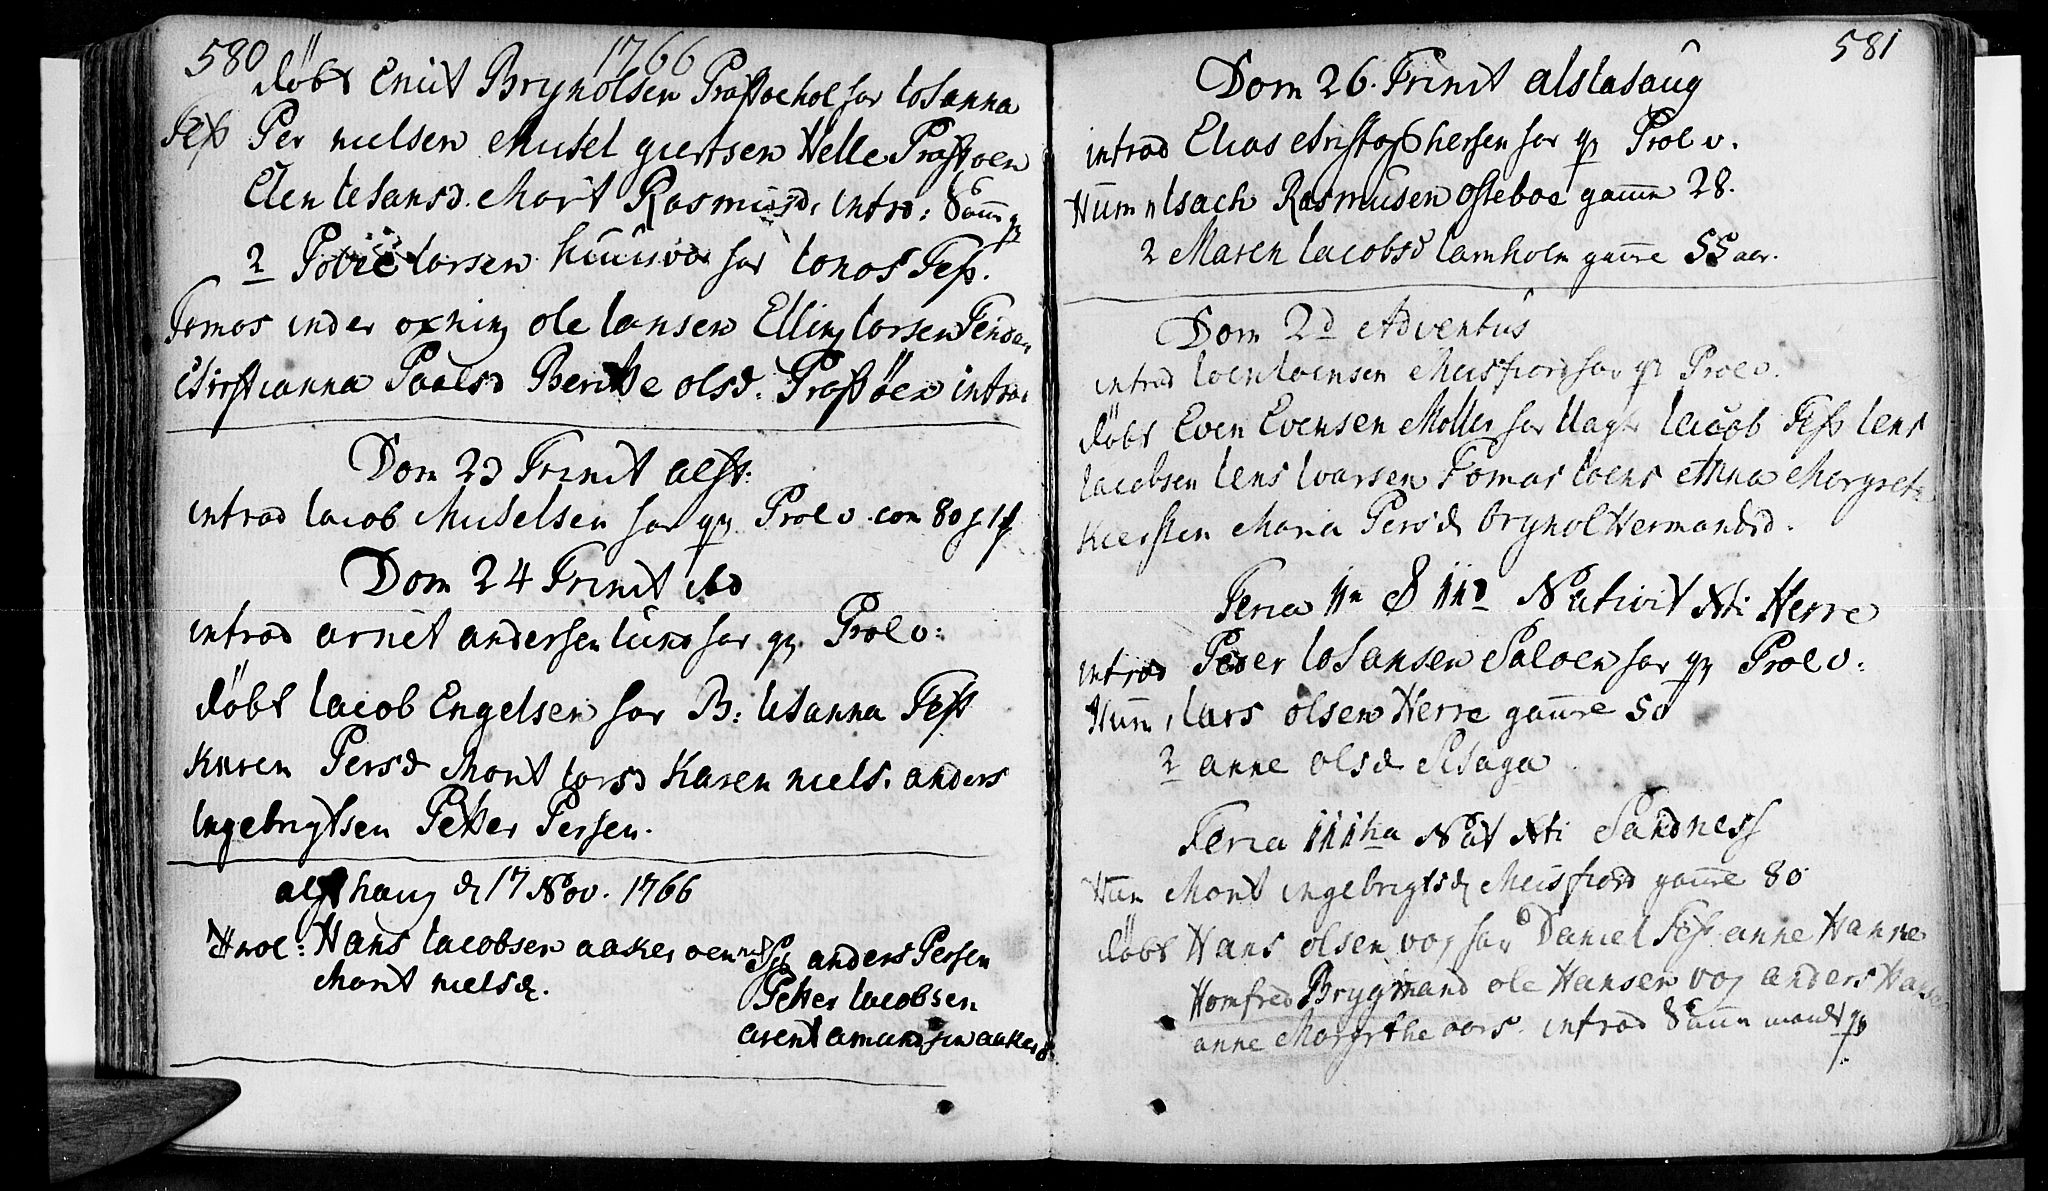 580 1766
døbt Cnut Brynolsen Præstøehol har Iohanna
Test Per nielsen Mickel giertsen Helle Præstøen
Elen Iehansd. Marit Rasmusd. introd: Samme qv
2 Povel larsen har Ionas Test.
Tomas inder oxning ole Iansen Elling larsen
Christianna Paalsd Beritte olsd. Præstøen introd.
Dom 23 Trinit alst:
introd Iacob Mickelsen har qv Prol v. com 80
Dom 24 Trinit ibd
introd arnit andersen Lund har qv. Prol v:
døbt Iacob Engelsen har B: Iohanna Test
Karen Persd Marit larsd Karen niels. anders
Ingebrigtsen Petter Persen.
alsthaug d 17 Nov. 1766
Trol: Hans Iacobsen aakerøen anders Persen
Marit nielsd. Petter Iacobsen
arent amundsen aaker
581
Dom 26. Trinit alstahaug
introd Elias Christophersen har qv Prol v.
Hum 1 Isach Rasmusen osteboe gamm 28.
2 Maren Iacobsd lamholm gamm 55 aar.
Dom 2d Adventus
introd Ioen Ioensen Meisfiord har qv Prol v.
døbt Even Evensen Moller har Iacob Test Iens
Iacobsen Iens Ivarsen Tomas Ioens Anna Margrete
Kiersten Maria Persd brynol Hermandsd.
Feria IIa & IIId Nativit Xti Herre
introd Peder Iohansen Saloen har qv Prol v:
Hum 1 lars olsen Herre gamm 50
2 anne olsd
Feria IIIIta Nat Xti Sandness
Hum Marit ingebrigtsd Meisfiord gamm 80
døbt Hans olsen vog har Daniel Test anne Hanne
Homfred Brygmand ole Hansen vog anders Hans
anne Margrthe aars. introd Samm maade qv